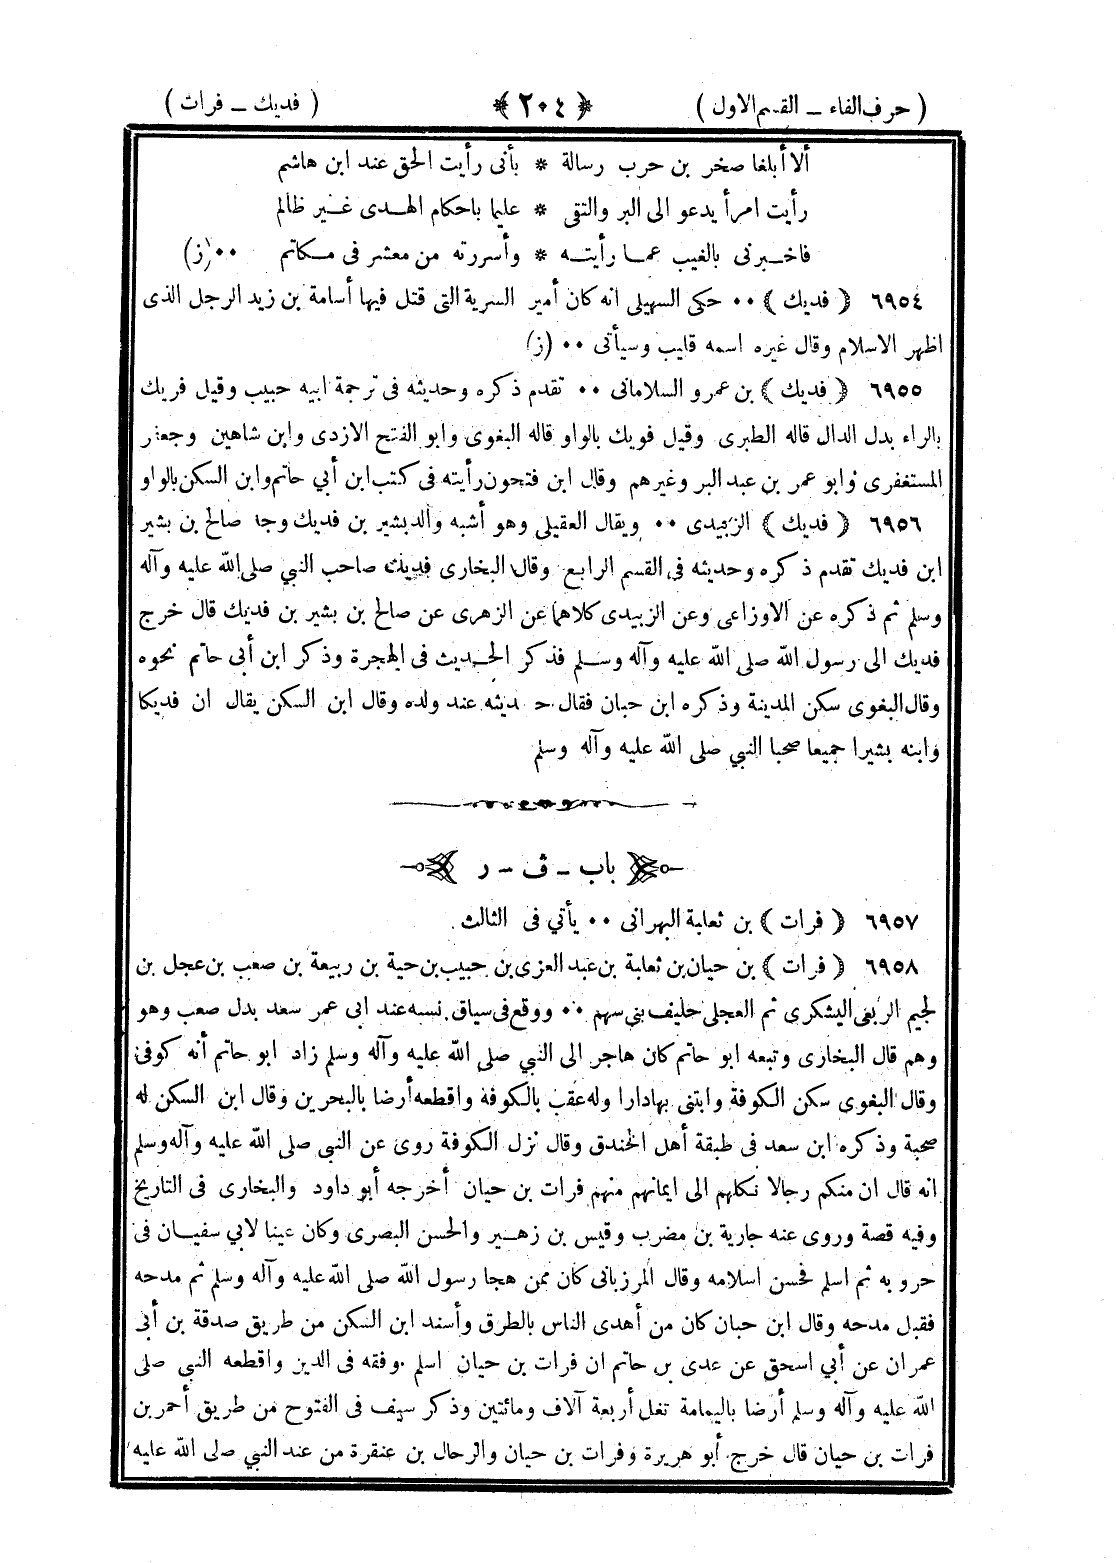 ( حرف الفاء ــ القسم الاول ) ﴿ ٢٠٤ ﴾ ( فديك ــ فرات )
ألا أبلغا صخر بن حرب رسالة * بأنى رأيت الحق عند ابن هاشم
رأيت امرأ يدعو الى البر والتقى * عليما باحكام الهـدى غـير ظالم
فاخـبرنى بالغيب عمـا رأيتـه * وأسررته من معشر فى مكاتم ٠٠ (ز)
٦٩٥٤ ﴿ فديك ﴾ ٠٠ حكى السهيلى انه كان أمير السرية التى قتل فيها أسامة بن زيد الرجل الذى
اظهر الاسلام وقال غيره اسمه قليب وسيأتى ٠٠ (ز)
٦٩٥٥ ﴿ فديك ﴾ بن عمرو السلامانى ٠٠ تقدم ذكره وحديثه فى ترجمة ابيه حبيب وقيل فريك
بالراء بدل الدال قاله الطبرى وقيل فويك بالواو قاله البغوى وابو الفتح الازدى وابن شاهين وجعفر
المستغفرى وابو عمر بن عبد البر وغيرهم وقال ابن فتحون رأيته فى كتب ابن أبي حاتم وابن السكن بالواو
٦٩٥٦ ﴿ فديك ﴾ الزبيدى ٠٠ ويقال العقيلى وهو أشبه والد بشير بن فديك وجد صالح بن بشير
ابن فديك تقدم ذكره وحديثه فى القسم الرابع وقال البخارى فديك صاحب النبي صلى الله عليه وآله
وسلم ثم ذكره عن الاوزاعى وعن الزبيدى كلاهما عن الزهرى عن صالح بن بشير بن فديك قال خرج
فديك الى رسول الله صلى الله عليه وآله وسـلم فذكر الحـديث فى الهجرة وذكر ابن أبى حاتم نحوه
وقال البغوى سكن المدينة وذكره ابن حبان فقال حديثه عند ولده وقال ابن السكن يقال ان فديكا
وابنه بشيرا جميعا صحبا النبي صلى الله عليه وآله وسلم
باب ــ ف ــ ر
٦٩٥٧ ﴿ فرات ﴾ بن ثعلبة البهرانى ٠٠ يأتي فى الثالث
٦٩٥٨ ﴿ فرات ﴾ بن حيان بن ثعلبة بن عبد العزى بن حبيب بن حية بن ربيعة بن صعب بن عجل بن
لجيم الربعى اليشكرى ثم العجلى حليف بني سهم ٠٠ ووقع فى سياق نسبه عند ابى عمر سعد بدل صعب وهو
وهم قال البخارى وتبعه ابو حاتم كان هاجر الى النبي صلى الله عليه وآله وسلم زاد ابو حاتم أنه كوفى
وقال البغوى سكن الكوفة وابتنى بها دارا وله عقب بالكوفة واقطعه أرضا بالبحرين وقال ابن السكن له
صحبة وذكره ابن سعد فى طبقة أهل الخندق وقال نزل الكوفة روى عن النبي صلى الله عليه وآله وسلم
انه قال ان منكم رجالا نكلهم الى ايمانهم منهم فرات بن حيان أخرجه أبو داود والبخارى فى التاريخ
وفيه قصة وروى عنه جارية بن مضرب وقيس بن زهـير والحسن البصرى وكان عينا لابي سفيـان فى
حروبه ثم اسلم فحسن اسلامه وقال المرزبانى كان ممن هجا رسول الله صلى الله عليه وآله وسلم ثم مدحه
فقبل مدحه وقال ابن حبان كان من أهدى الناس بالطرق وأسند ابن السكن من طريق صدقة بن أبى
عمران عن أبي اسحق عن عدى بن حاتم ان فرات بن حيان اسلم وفقه فى الدين واقطعه النبي صلى
الله عليه وآله وسلم أرضا باليمامة تغل أربعة آلاف ومائتين وذكر سيف فى الفتوح من طريق أحمر بن
فرات بن حيان قال خرج أبو هريرة وفرات بن حيان والرحال بن عنقرة من عند النبي صلى الله عليه